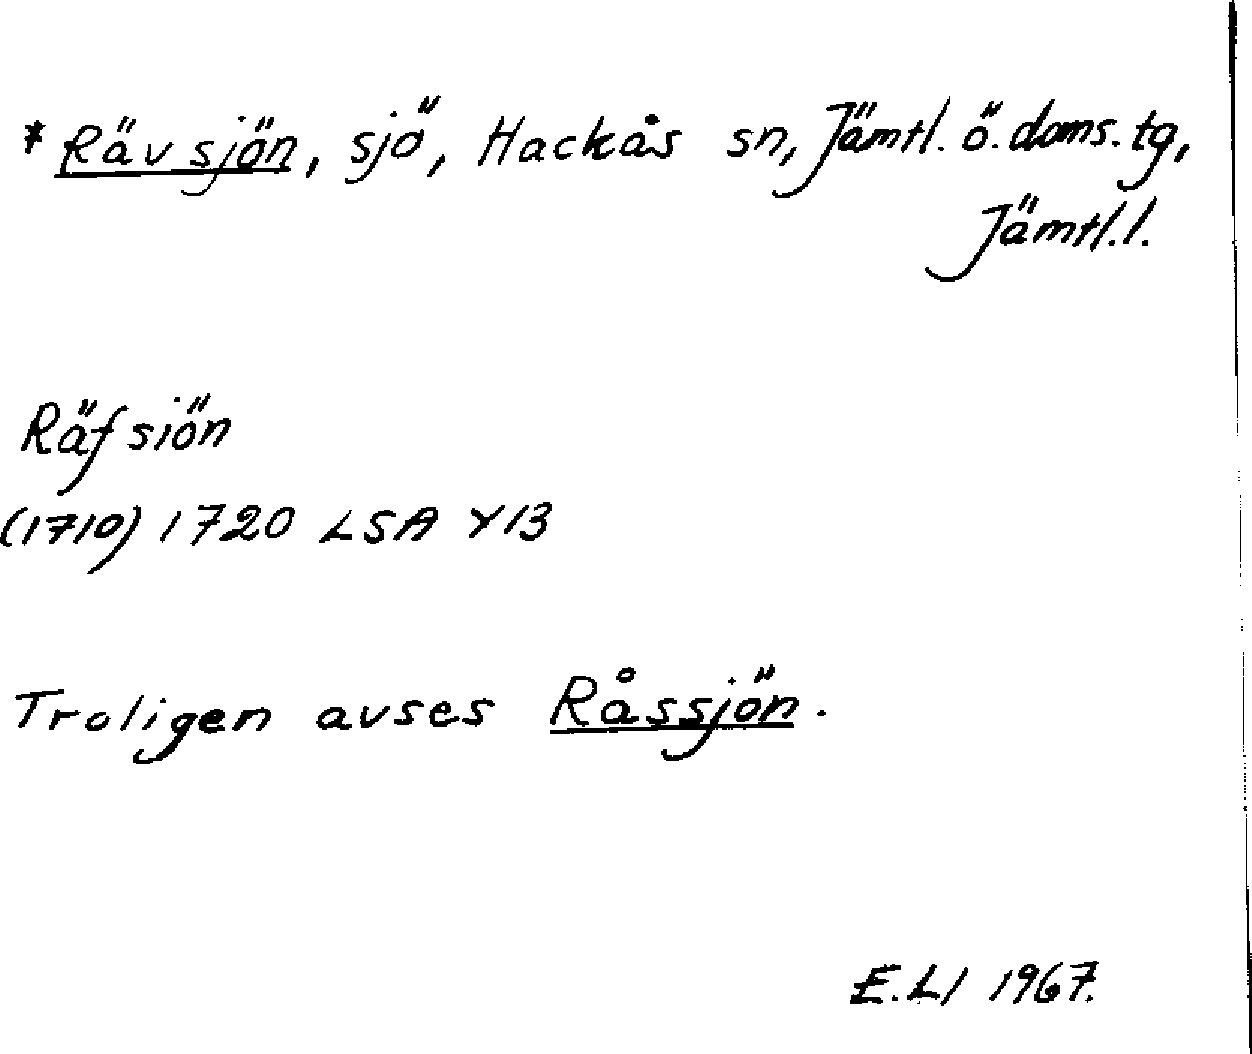 * Rävsjön, sjö, Hackås sn, Jämtl. ö. doms. tg,
Jämtl. l.
Räfsiön
(1710) 1720 LSA Y13
Troligen avses Råssjön.
E. Ll 1967.